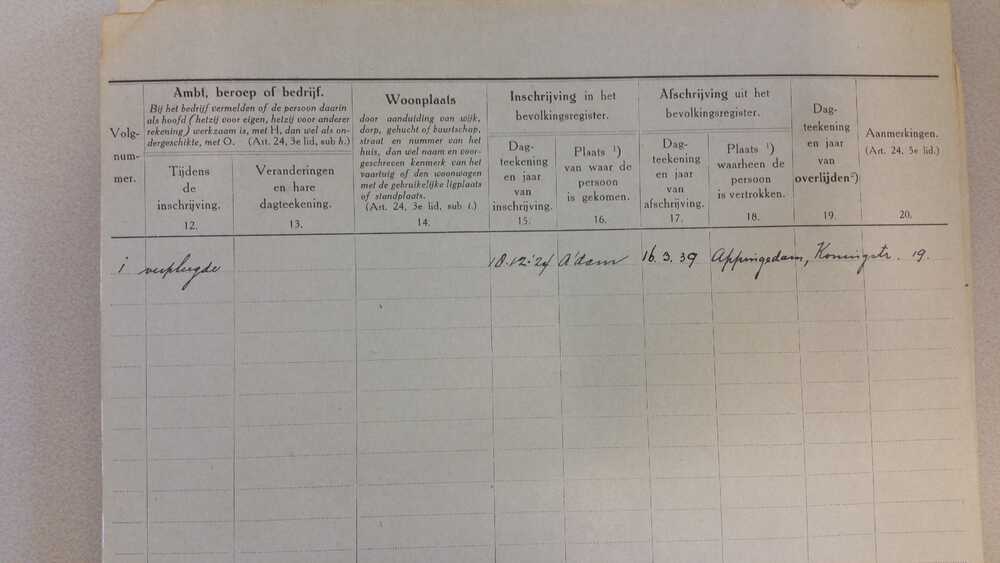 Volg-
num-
mer.
Ambt, beroep of bedrijf.
Bij het bedrijf vermelden of de persoon daarin
als hoofd (hetzij voor eigen, hetzij voor anderer
rekening) werkzaam is, met H, dan wel als on-
dergeschikte, met O. (Art. 24, 3e lid, sub h.)
Tijdens
de
inschrijving.
12.
Veranderingen
en hare
dagteekening.
13.
Woonplaats
door aanduiding van wijk,
dorp, gehucht of buurtschap,
straat en nummer van het
huis, dan wel naam en voor-
geschreven kenmerk van het
vaartuig of den woonwagen
met de gebruikelijke ligplaats
of standplaats.
(Art. 24, 3e lid, sub i.)
14.
Inschrijving in het
bevolkingsregister.
Dag-
teekening
en jaar
van
inschrijving.
15.
Plaats ¹)
van waar de
persoon
is gekomen.
16.
Afschrijving uit het
bevolkingsregister.
Dag-
teekening
en jaar
van
afschrijving.
17.
Plaats ¹)
waarheen de
persoon
is vertrokken.
18.
Dag-
teekening
en jaar
van
overlijden²)
19.
Aanmerkingen.
(Art. 24, 3e lid.)
20.
1 verpleegde 18.12.'24 A'dam 16.3.39 Appingedam, Koningstr. 19.